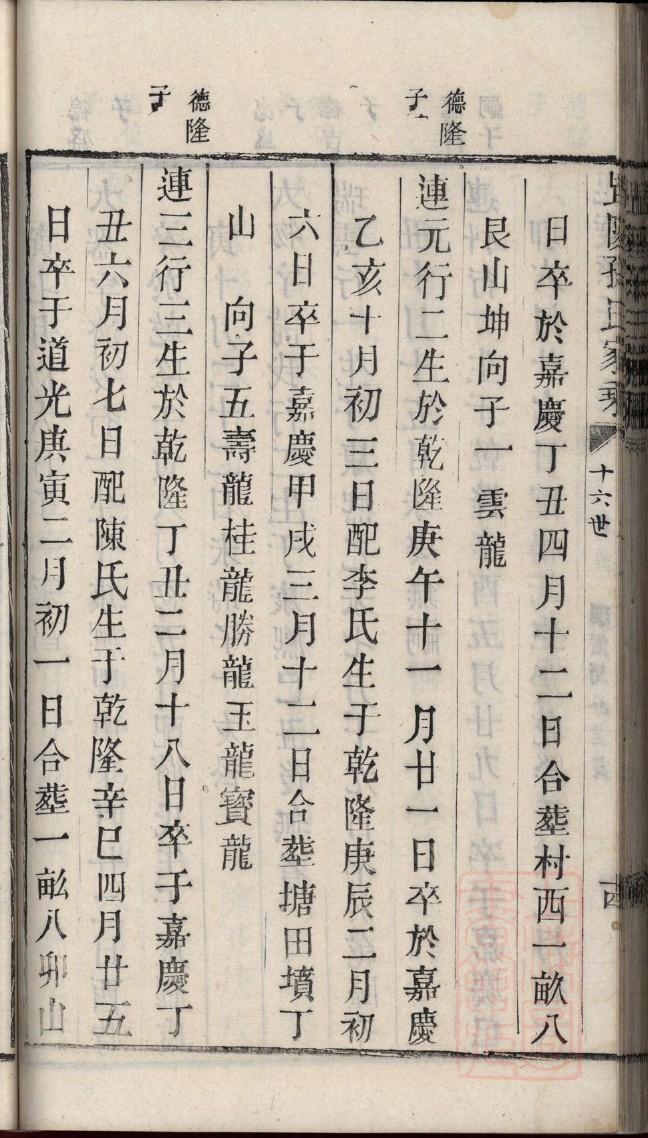 陵孫氏家乘 十六世
日卒於嘉慶丁丑四月十二日合塟村西一畝八
艮山坤向子一雲龍
德隆子
連元行二生於乾隆庚午十一月廿一日卒於嘉慶
乙亥十月初三日配李氏生于乾隆庚辰二月初
六日卒于嘉慶甲戌三月十二日合塟塘田墳丁
山 向子五壽龍桂龍勝龍玉龍寶龍
德隆子
連三行三生於乾隆丁丑二月十八日卒于嘉慶丁
丑六月初七日配陳氏生于乾隆辛巳四月廿五
日卒于道光庚寅二月初一日合塟一畝八卯山